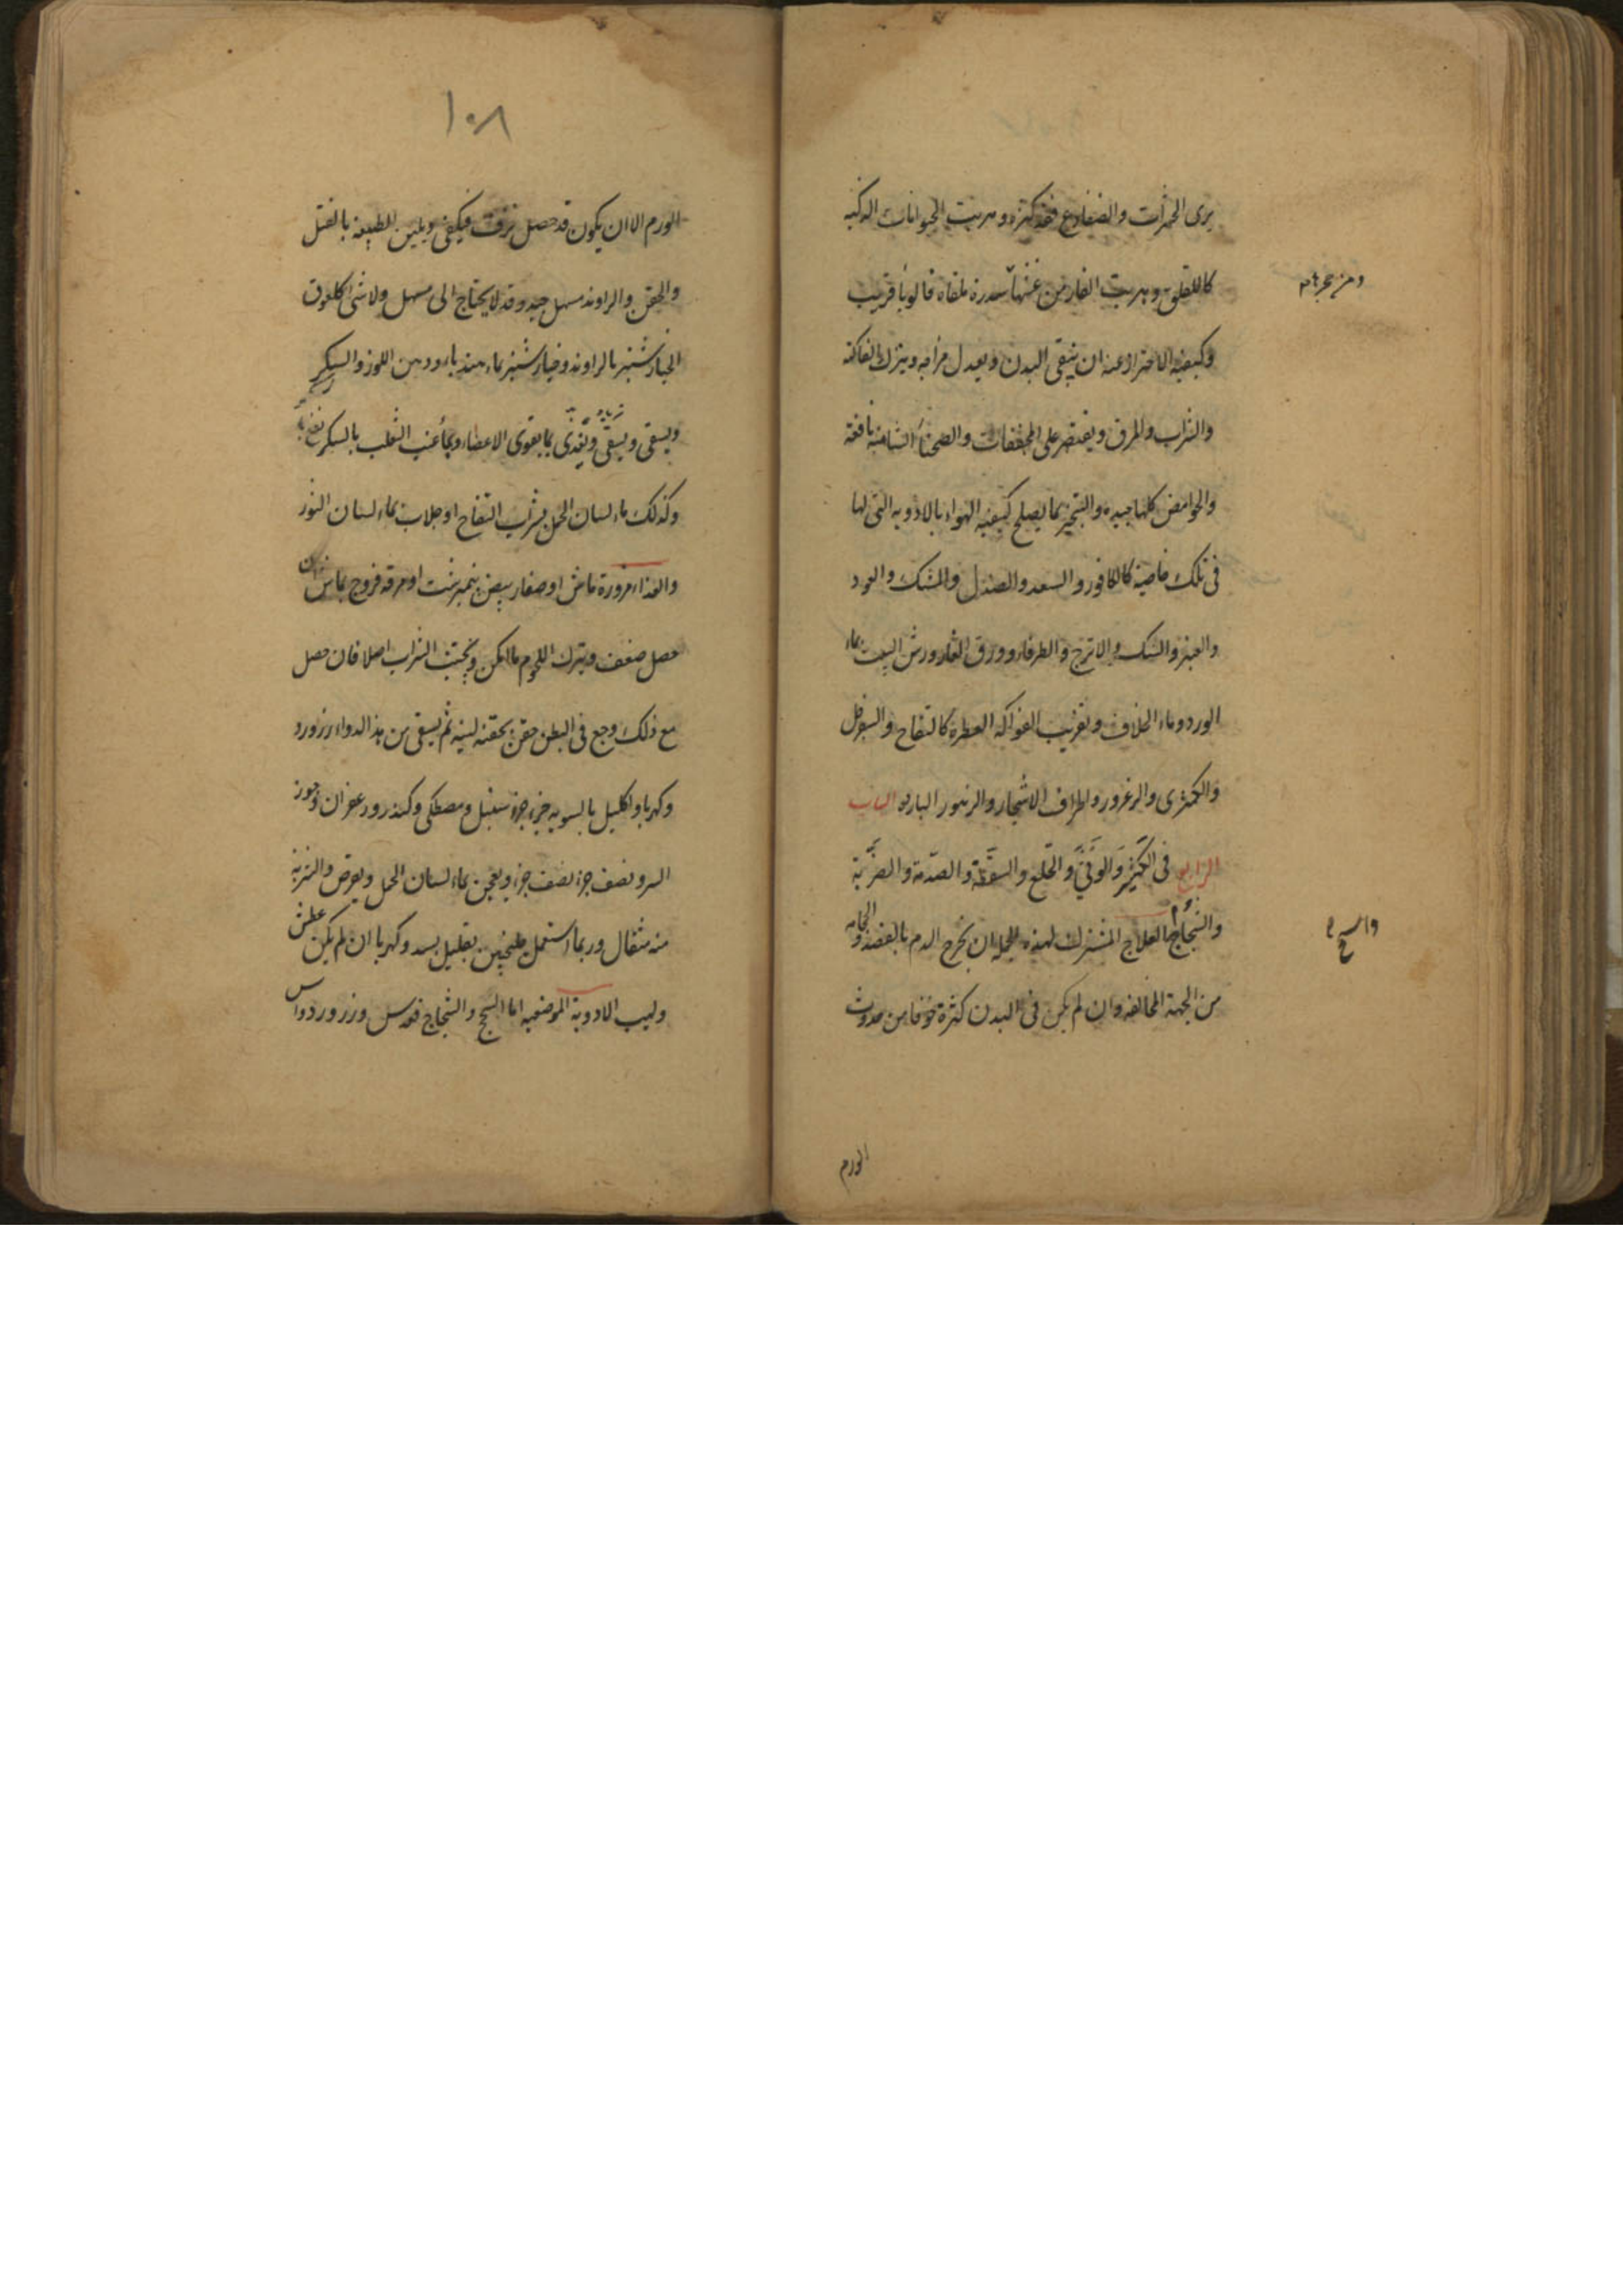 يرى الحشرات والضفادع قد كثرت وهربت الحيوانات الذكية
كاللقلق وهربت الفار من سدرة ملقاه فالوبا قريب
ومن جحرها
وكيفية الاحتراز عنه ان ينقى البدن ويعدل مزاجه ويترك الفاكهة
والشراب والمرق ويقتصر على المجففات والصحناة الشامية نافعة
والحوامض كلها جيدة والتبخير بما يصلح كيفية الهواء بالادوية التى لها
فى ذلك خاصية كالكافور والسعد والصندل والمسك والعود
والعنبر والسك والاترج والطرفاء وورق الغار ورش البيت بماء
الورد وماء الخلاف وتقريب الفواكه العطرة كالتفاح والسفرجل
والكمثرى والزعرور واطراف الاشجار والزهور الباردة الباب
الرابع فى الكسر والوثى والخلع والسقطة والصدمة والضربة
والشجاج العلاج المشترك لهذه الجملة ان يخرج الدم بالفصد والحجامة
من الجهة المخالفة وان لم يكن فى البدن كثرة خوفا من حدوث
الورم
١٠٨
الورم الا ان يكون قد حصل نزف فيكفى ويلين الطبيعة بالفتل
والحقن والراوند مسهل جيد وقد لا يحتاج الى مسهل ولا شئ كلعوق
الخيارشنبر بالراوند وخيارشنبر بماء هندباء ودهن اللوز والسكر
ويسقى ويسقى ويغذى بما يقوى الاعضاء وبماء عنب الثعلب بالسكر
وكذلك ماء لسان الحمل بشراب التفاح او جلاب بماء لسان الثور
والغذاء مزورة ماش او صفار بيض نيمبرشت او مرقة فروج بماش ان
حصل ضعف ويترك اللحوم ما امكن ويجتنب الشراب اصلا فان حصل
مع ذلك وجع فى البطن حقن بحقنة لينة ثم يسقى من هذا الدواء زرورد
وكهربا واكليل بالسوية جزء جزء سنبل ومصطكى وكندر وزعفران وجوز
السرو نصف جزء نصف جزء ويعجن بماء لسان الحمل ويقرص والشربة
منه مثقال وربما استعمل خلنجبين بقليل بسد وكهربا ان لم يكن عطش
ولهيب الادوية الموضعية اما السحج والشجاج فعدس وزرورد واس